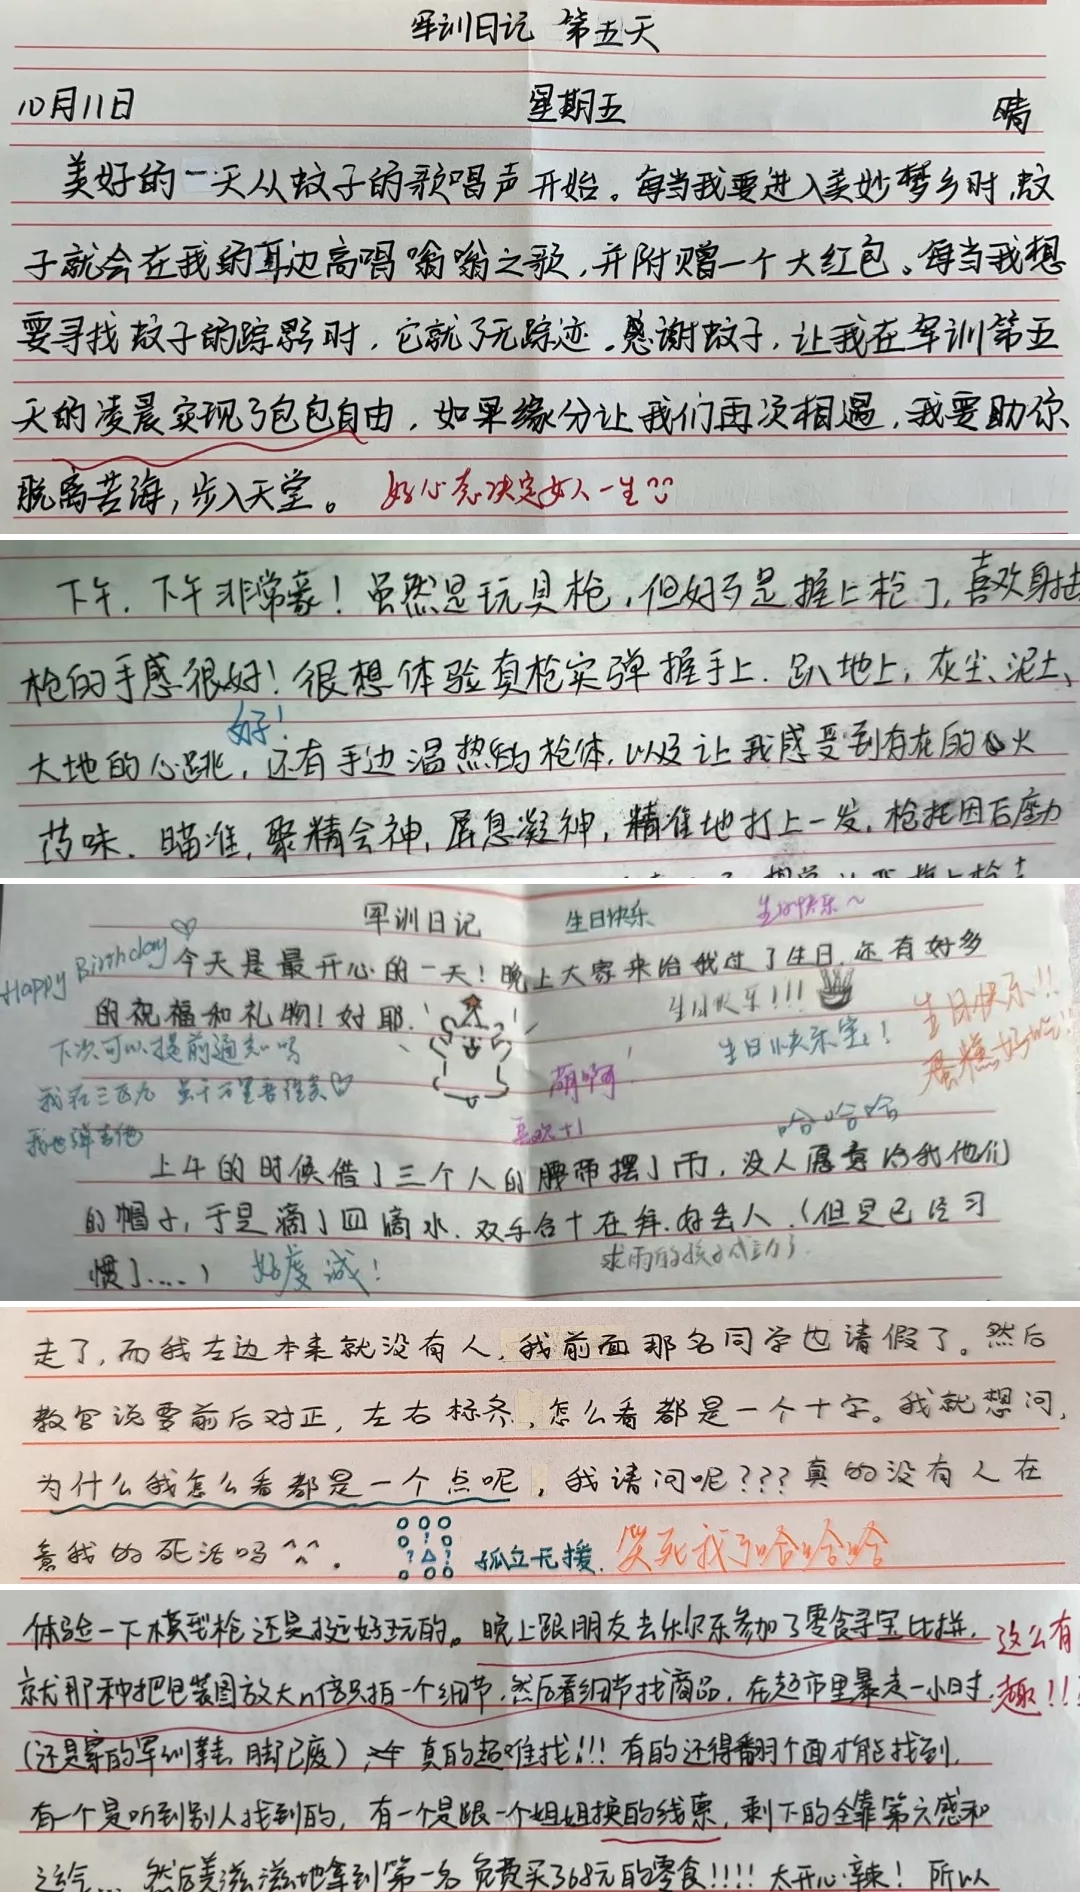 军训日记 第五天
10月11日 星期五 晴
美好的一天从蚊子的歌唱声开始。每当我要进入美妙梦乡时,蚊
子就会在我的耳边高唱嗡嗡之歌,并附赠一个大红包。每当我想
要寻找蚊子的踪影时,它就了无踪迹。感谢蚊子,让我在军训第五
天的凌晨实现了包包自由,如果缘分让我们再次相遇,我要助你
脱离苦海,步入天堂。 好心态决定女人一生
下午,下午非常豪!虽然是玩具枪,但好歹是握上枪了,喜欢射击
枪的手感很好!很想体验真枪实弹握手上,趴地上,灰尘、泥土、
好!
大地的心跳,还有手边温热的枪体,以及让我感受到存在的火
药味。瞄准,聚精会神,屏息凝神,精准地打上一发,枪托因后座力
军训日记 生日快乐 生日快乐~
Happy Birthday 今天是最开心的一天!晚上大家来给我过了生日,还有好多
的祝福和礼物!好耶! 生日快乐!!! 生日快乐!!
下次可以提前通知吗 生日快乐宝! 蛋糕好吃!
萌啊!
我也弹吉他 喜欢+1 哈哈哈
上午的时候借了三个人的腰带摆了雨,没人愿意给我他们
的帽子,于是滴了四滴水,双手合十在拜,好丢人。(但是已经习
惯了....) 好虔诚! 求雨的孩子成功了
走了,而我左边本来就没有人,我前面那名同学也请假了。然后
教官说要前后对正,左右标齐,怎么看都是一个十字。我就想问,
为什么我怎么看都是一个点呢,我请问呢???真的没有人在
意我的死活吗^^。 孤立无援. 笑死我了哈哈哈哈
体验一下模型枪还是挺好玩的。晚上跟朋友去乐尔乐参加了零食寻宝比拼, 这么有
就那种把包装图放大n倍只拍一个细节,然后看细节找商品,在超市里暴走一小时, 趣!!!
(还是穿的军训鞋 脚已废) 真的超难找!!!有的还得翻个面才能找到,
有一个是听到别人找到的,有一个是跟一个姐姐换的线索,剩下的全靠第六感和
运气... 然后美滋滋地拿到第一名 免费买了368元的零食!!!!太开心辣!所以